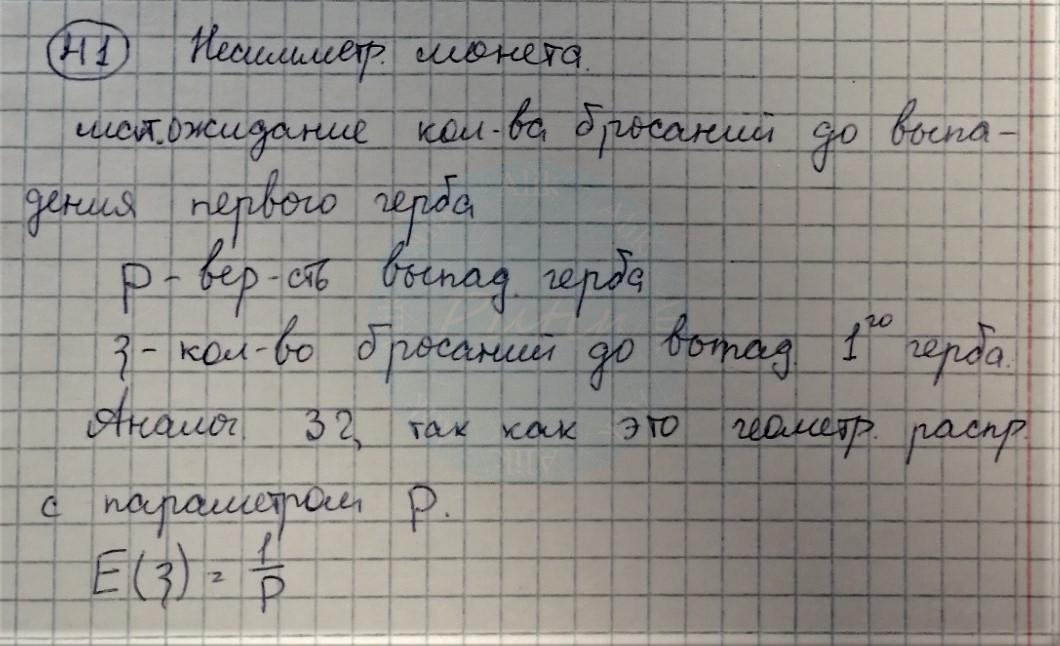 41 Несимметр. монета.
мат.ожидание кол-ва бросаний до выпа-
дения первого герба
p - вер-сть выпад. герба
ξ - кол-во бросаний до выпад. 1го герба.
Аналог. 32, так как это геометр. распр.
с параметром p.
E(ξ) = 1/p